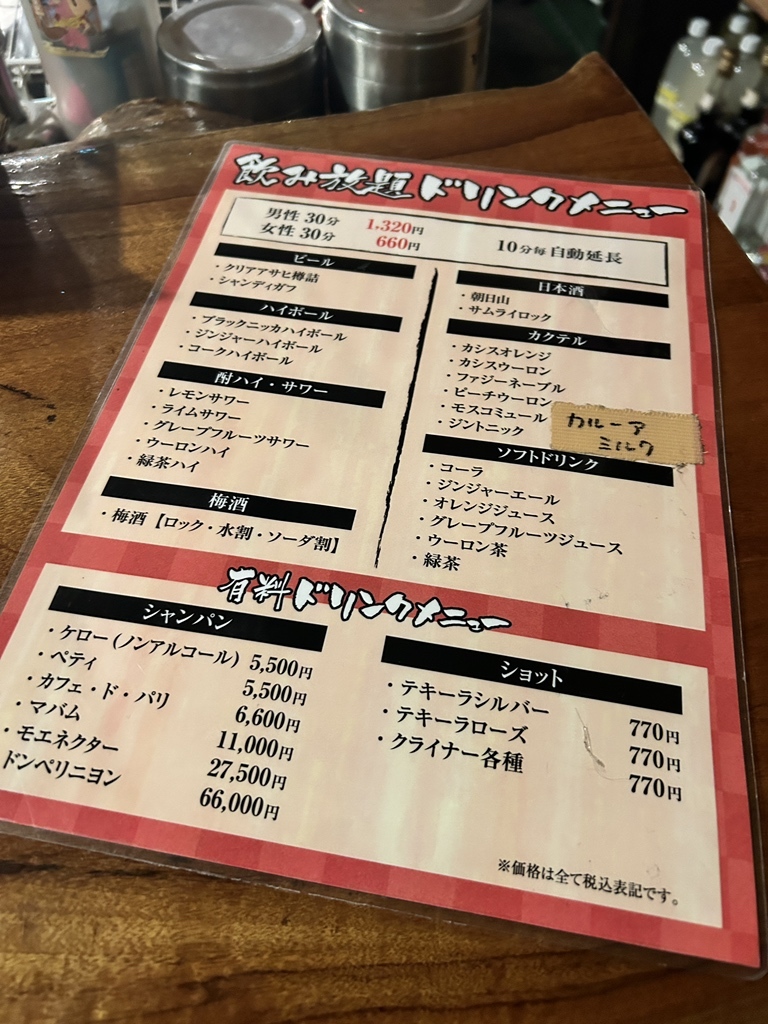 飲み放題ドリンクメニュー
男性 30分 1,320円
女性 30分 660円
10分毎 自動延長
ビール
・クリアアサヒ樽詰
・シャンディガフ
ハイボール
・ブラックニッカハイボール
・ジンジャーハイボール
・コークハイボール
酎ハイ・サワー
・レモンサワー
・ライムサワー
・グレープフルーツサワー
・ウーロンハイ
・緑茶ハイ
梅酒
・梅酒【ロック・水割・ソーダ割】
日本酒
・朝日山
・サムライロック
カクテル
・カシスオレンジ
・カシスウーロン
・ファジーネーブル
・ピーチウーロン
・モスコミュール
・ジントニック
カルーア
ミルク
ソフトドリンク
・コーラ
・ジンジャーエール
・オレンジジュース
・グレープフルーツジュース
・ウーロン茶
・緑茶
有料ドリンクメニュー
シャンパン
・ケロー(ノンアルコール) 5,500円
・ペティ 5,500円
・カフェ・ド・パリ 6,600円
・マバム 11,000円
・モエネクター 27,500円
ドンペリニヨン 66,000円
ショット
・テキーラシルバー 770円
・テキーラローズ 770円
・クライナー各種 770円
※価格は全て税込表記です。